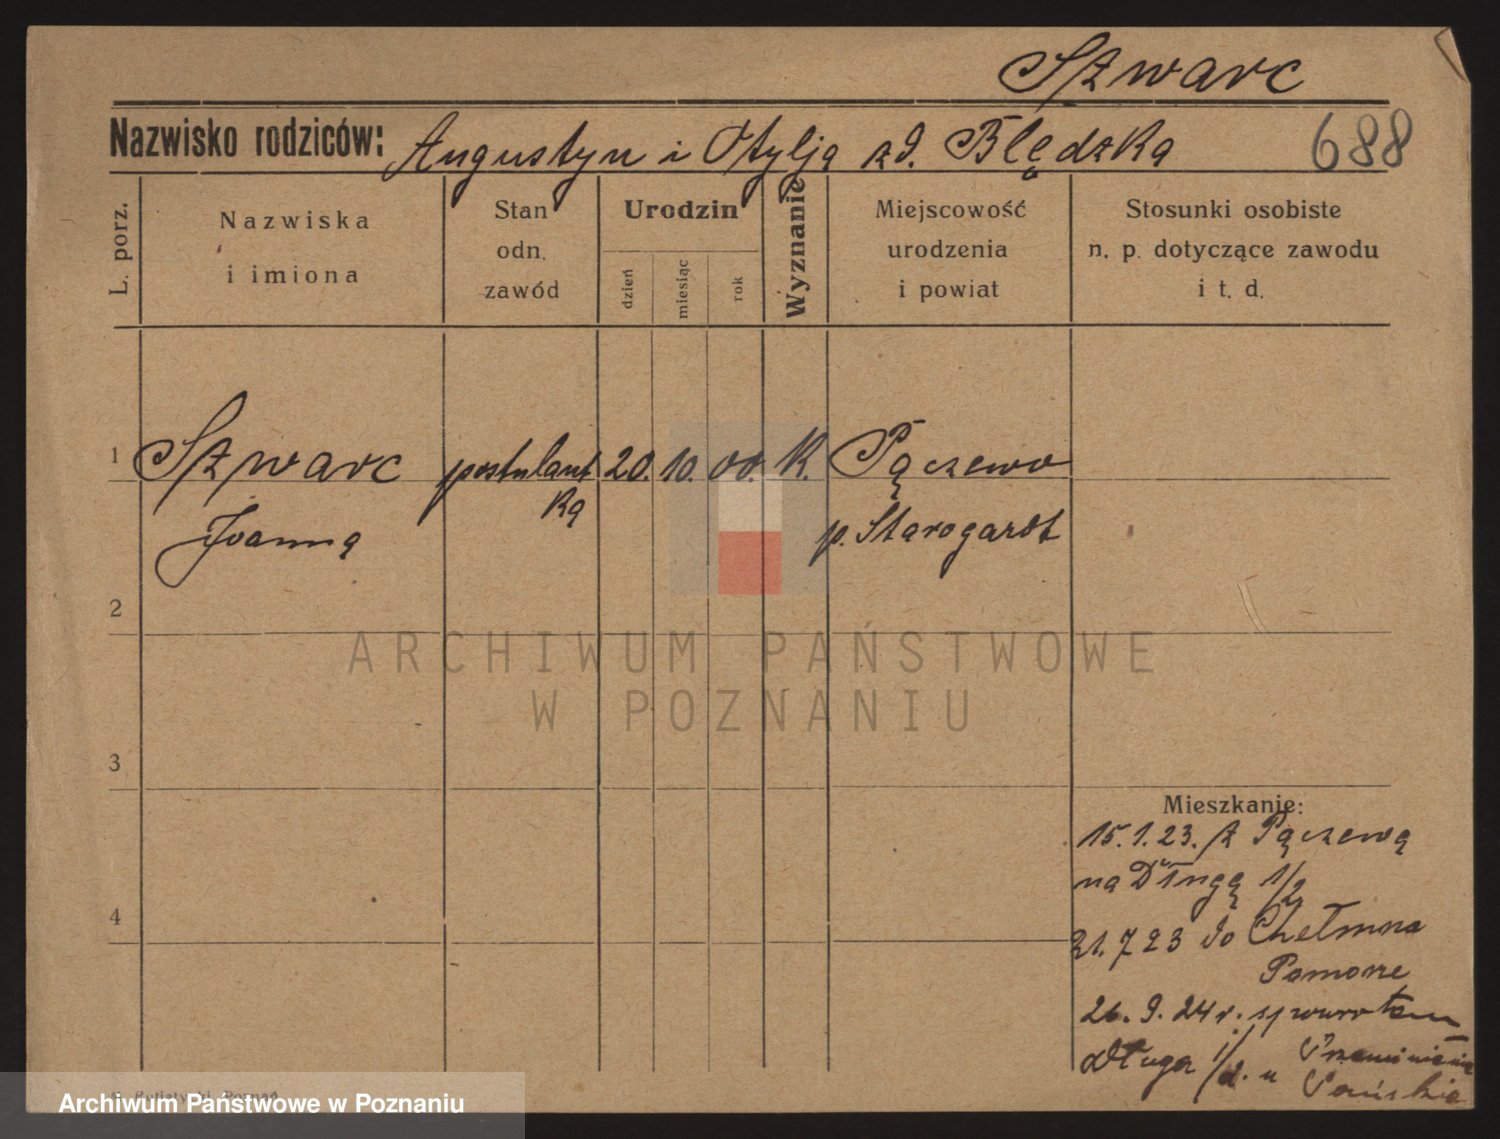 Szwarc
Nazwisko rodziców: Augustyn i Otylja zd. Błędzka 688
L. porz.
Nazwiska
i imiona
Stan
odn.
zawód
Urodzin
dzień
miesiąc
rok
Wyznanie
Miejscowość
urodzenia
i powiat
Stosunki osobiste
n. p. dotyczące zawodu
i t. d.
1 Szwarc postulant 20. 10. 00. K. Pączewo
ką
Joanna p. Starogardt
2
ARCHIWUM PAŃSTWOWE
W POZNANIU
3
Mieszkanie:
15.1.23. z Pączewa
na Długą 1/2
4
21.7 23 do Chełmna
Pomorze
26.9.24 r. spowrotem
Długa 1/2. u
Pańskie
Poznań
Archiwum Państwowe w Poznaniu